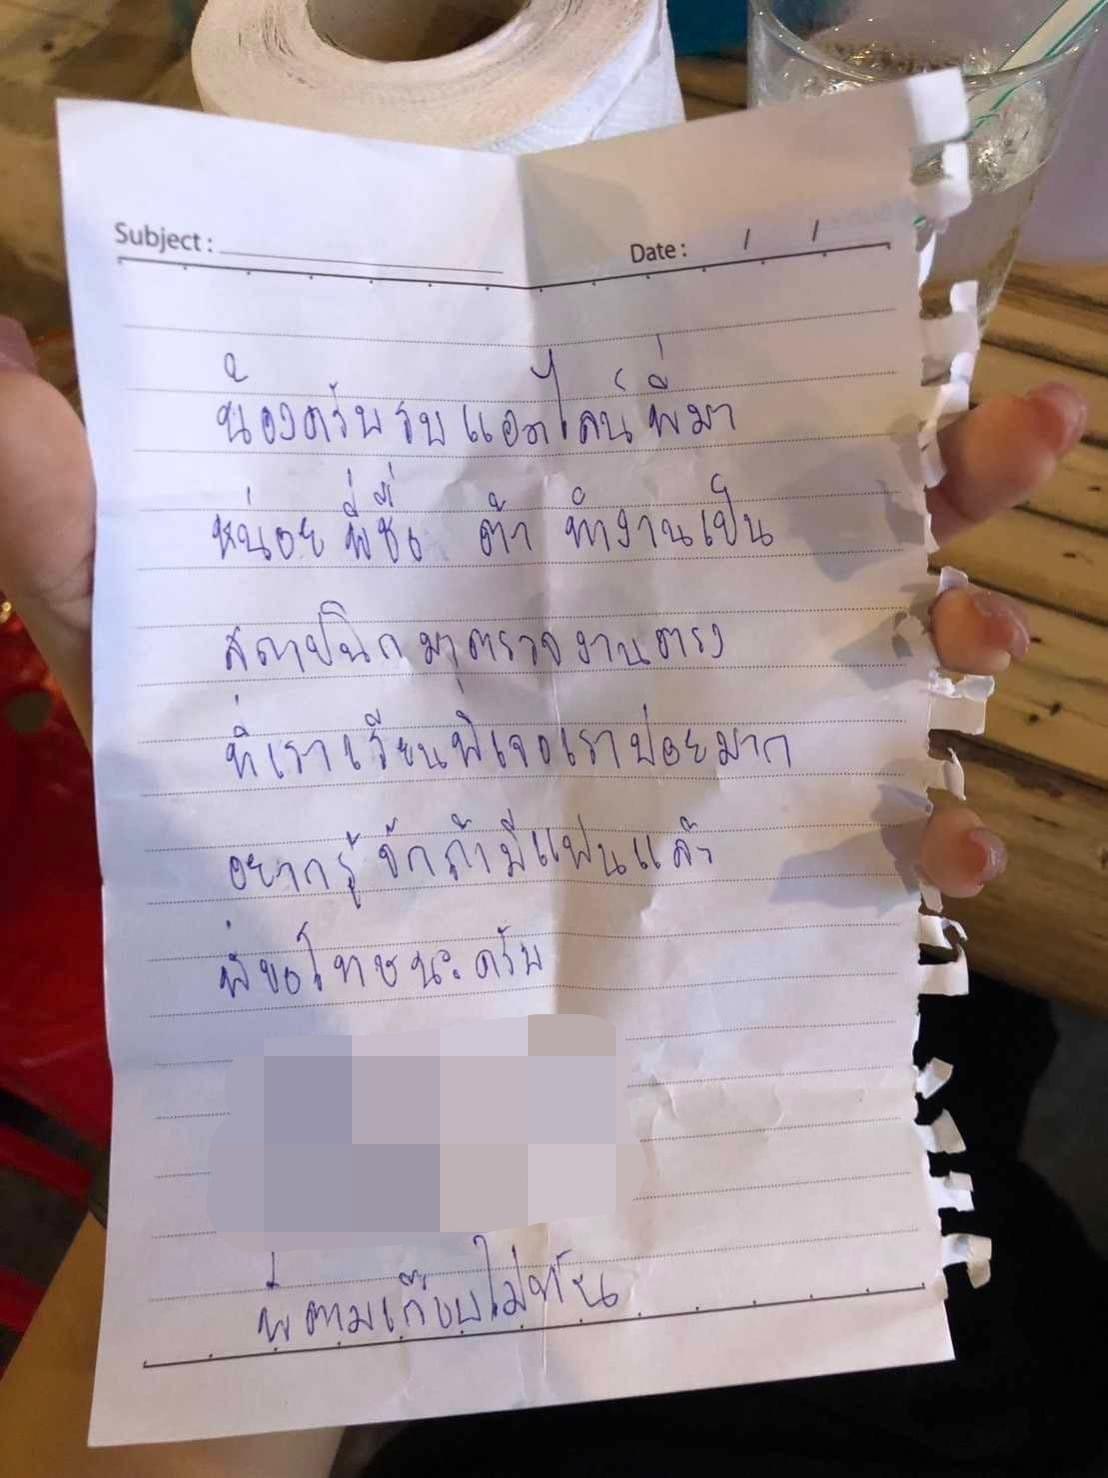 Subject :
Date : / /
น้องครับรบแอดไลน์พี่มา
หน่อยพี่ชื่อ ต้า ทำงานเป็น
สถาปนิก มาตรวจงานตรง
ที่เราเรียนพี่เจอเราบ่อยมาก
อยากรู้จักถ้ามีแฟนแล้ว
พี่ขอโทษนะครับ
พี่ตามเกือบไม่ทัน